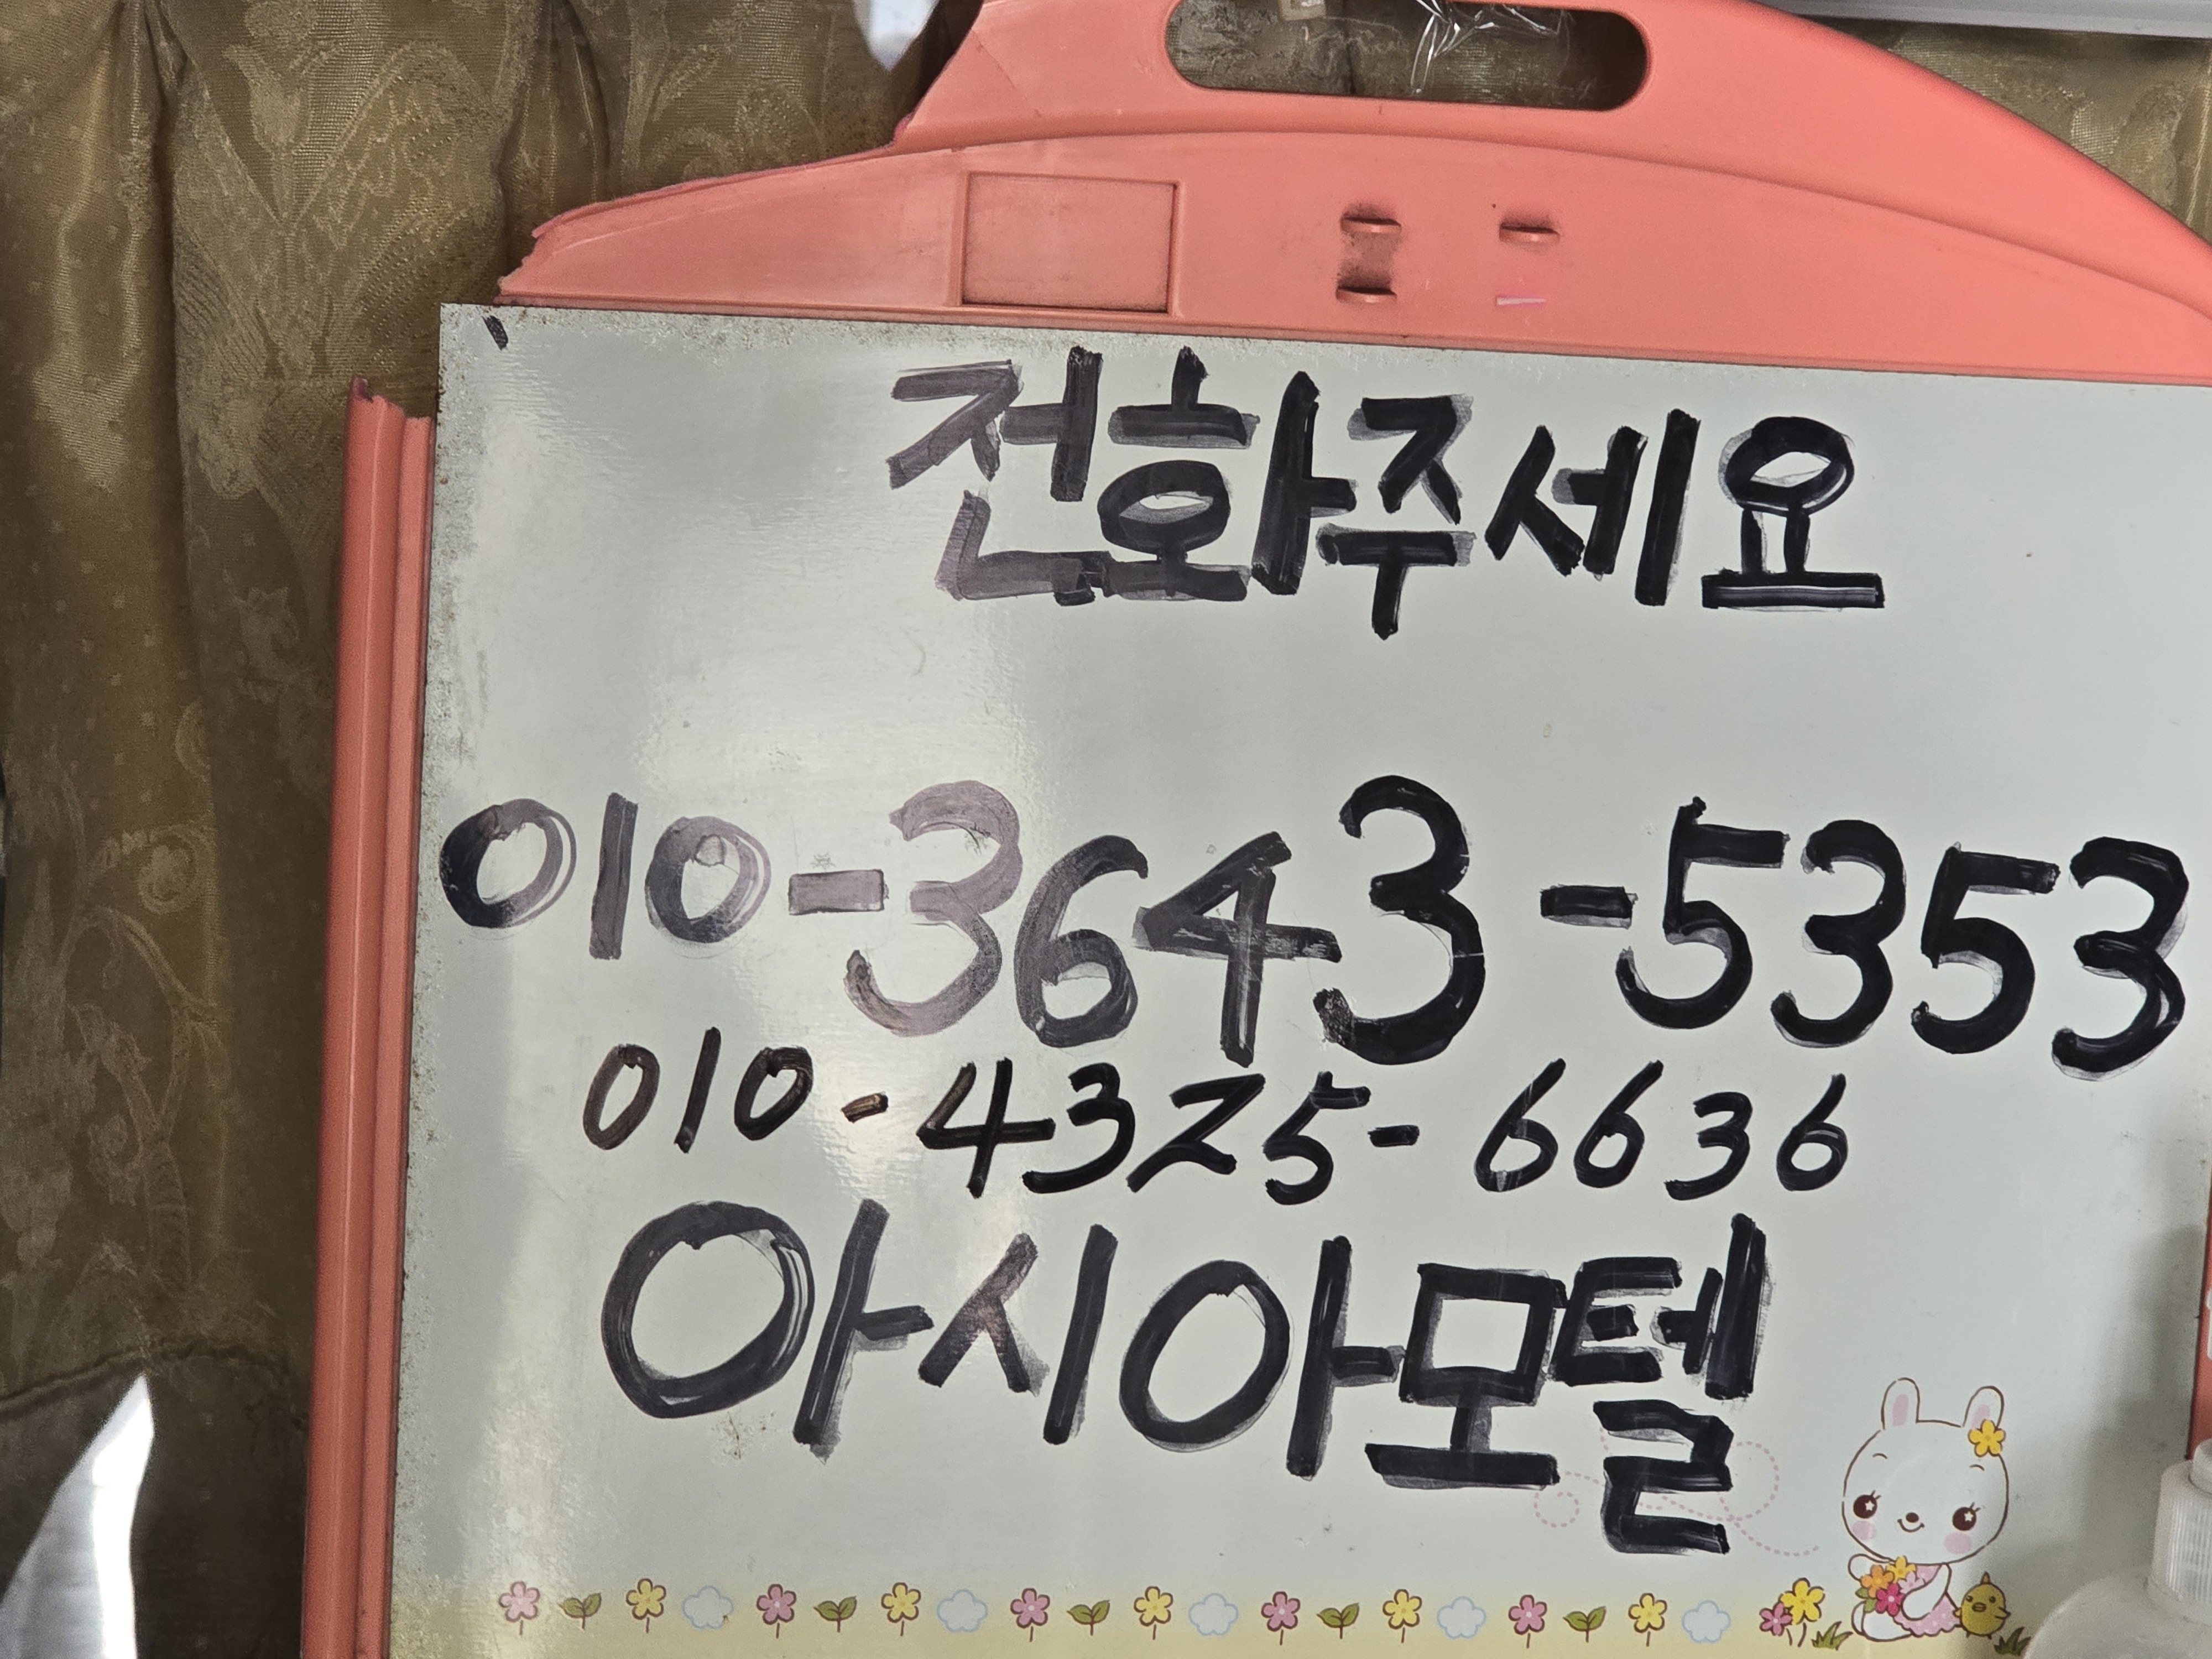 전화주세요
010-3643-5353
010-4325-6636
아시아모텔